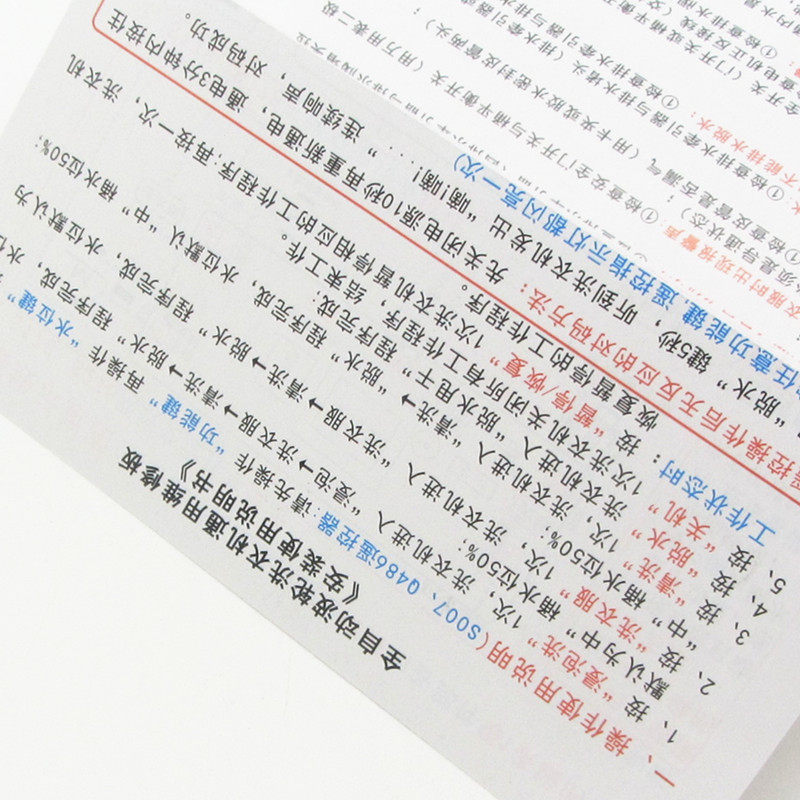 全自动波轮洗衣机通用维修板
《安装使用说明书》
一、操作使用说明(S007、Q486遥控器:请先操作“功能键”再操作“水位键”
1、按“浸泡洗”1次,洗衣机进入“浸泡→洗衣服→清洗→脱水”程序完成,水位
默认为“中”桶水位50%;
2、按“洗衣服”1次,洗衣机进入“洗衣服→清洗→脱水”程序完成,水位默认为
“中”桶水位50%;
3、按“清洗”1次,洗衣机进入“清洗→脱水”程序完成,水位默认“中”桶水位50%;
4、按“脱水”1次,洗衣机进入“脱水甩干”程序完成;
5、按“关机”1次洗衣机关闭所有工作程序,结束工作。
工作状态时:按“暂停/恢复”1次洗衣机暂停相应的工作程序;再按一次,洗衣机
恢复暂停的工作程序。
遥控操作后无反应的对码方法:先关闭电源10秒再重新通电,通电3分钟内按住
“脱水”键5秒,听到洗衣机发出“嘀!嘀!.....”连续响声,对码成功。
任意功能键 遥控指示灯都闪亮一次)
衣服时出现报警声
①检查安全门开关与桶平衡开关(用万用表二极
须是导通状态)
①检查皮管是否漏气(用卡夹或胶水密封皮管两头)
不能排水脱水:①检查排水牵引器与排水堵头